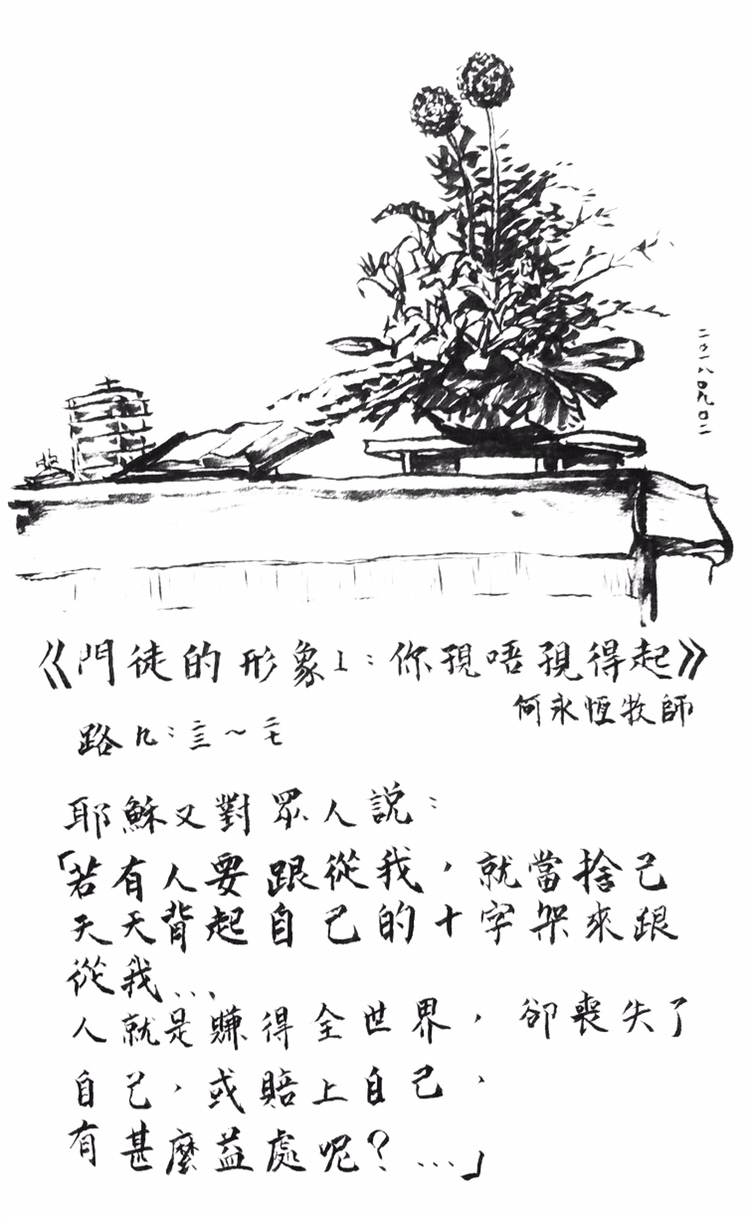 二〇一八〇九〇二
《門徒的形象1：你孭唔孭得起》
何永恆牧師
路九：二三～二七
耶穌又對眾人說：
「若有人要跟從我，就當捨己
天天背起自己的十字架來跟
從我...
人就是賺得全世界，卻喪失了
自己，或賠上自己，
有甚麼益處呢？...」